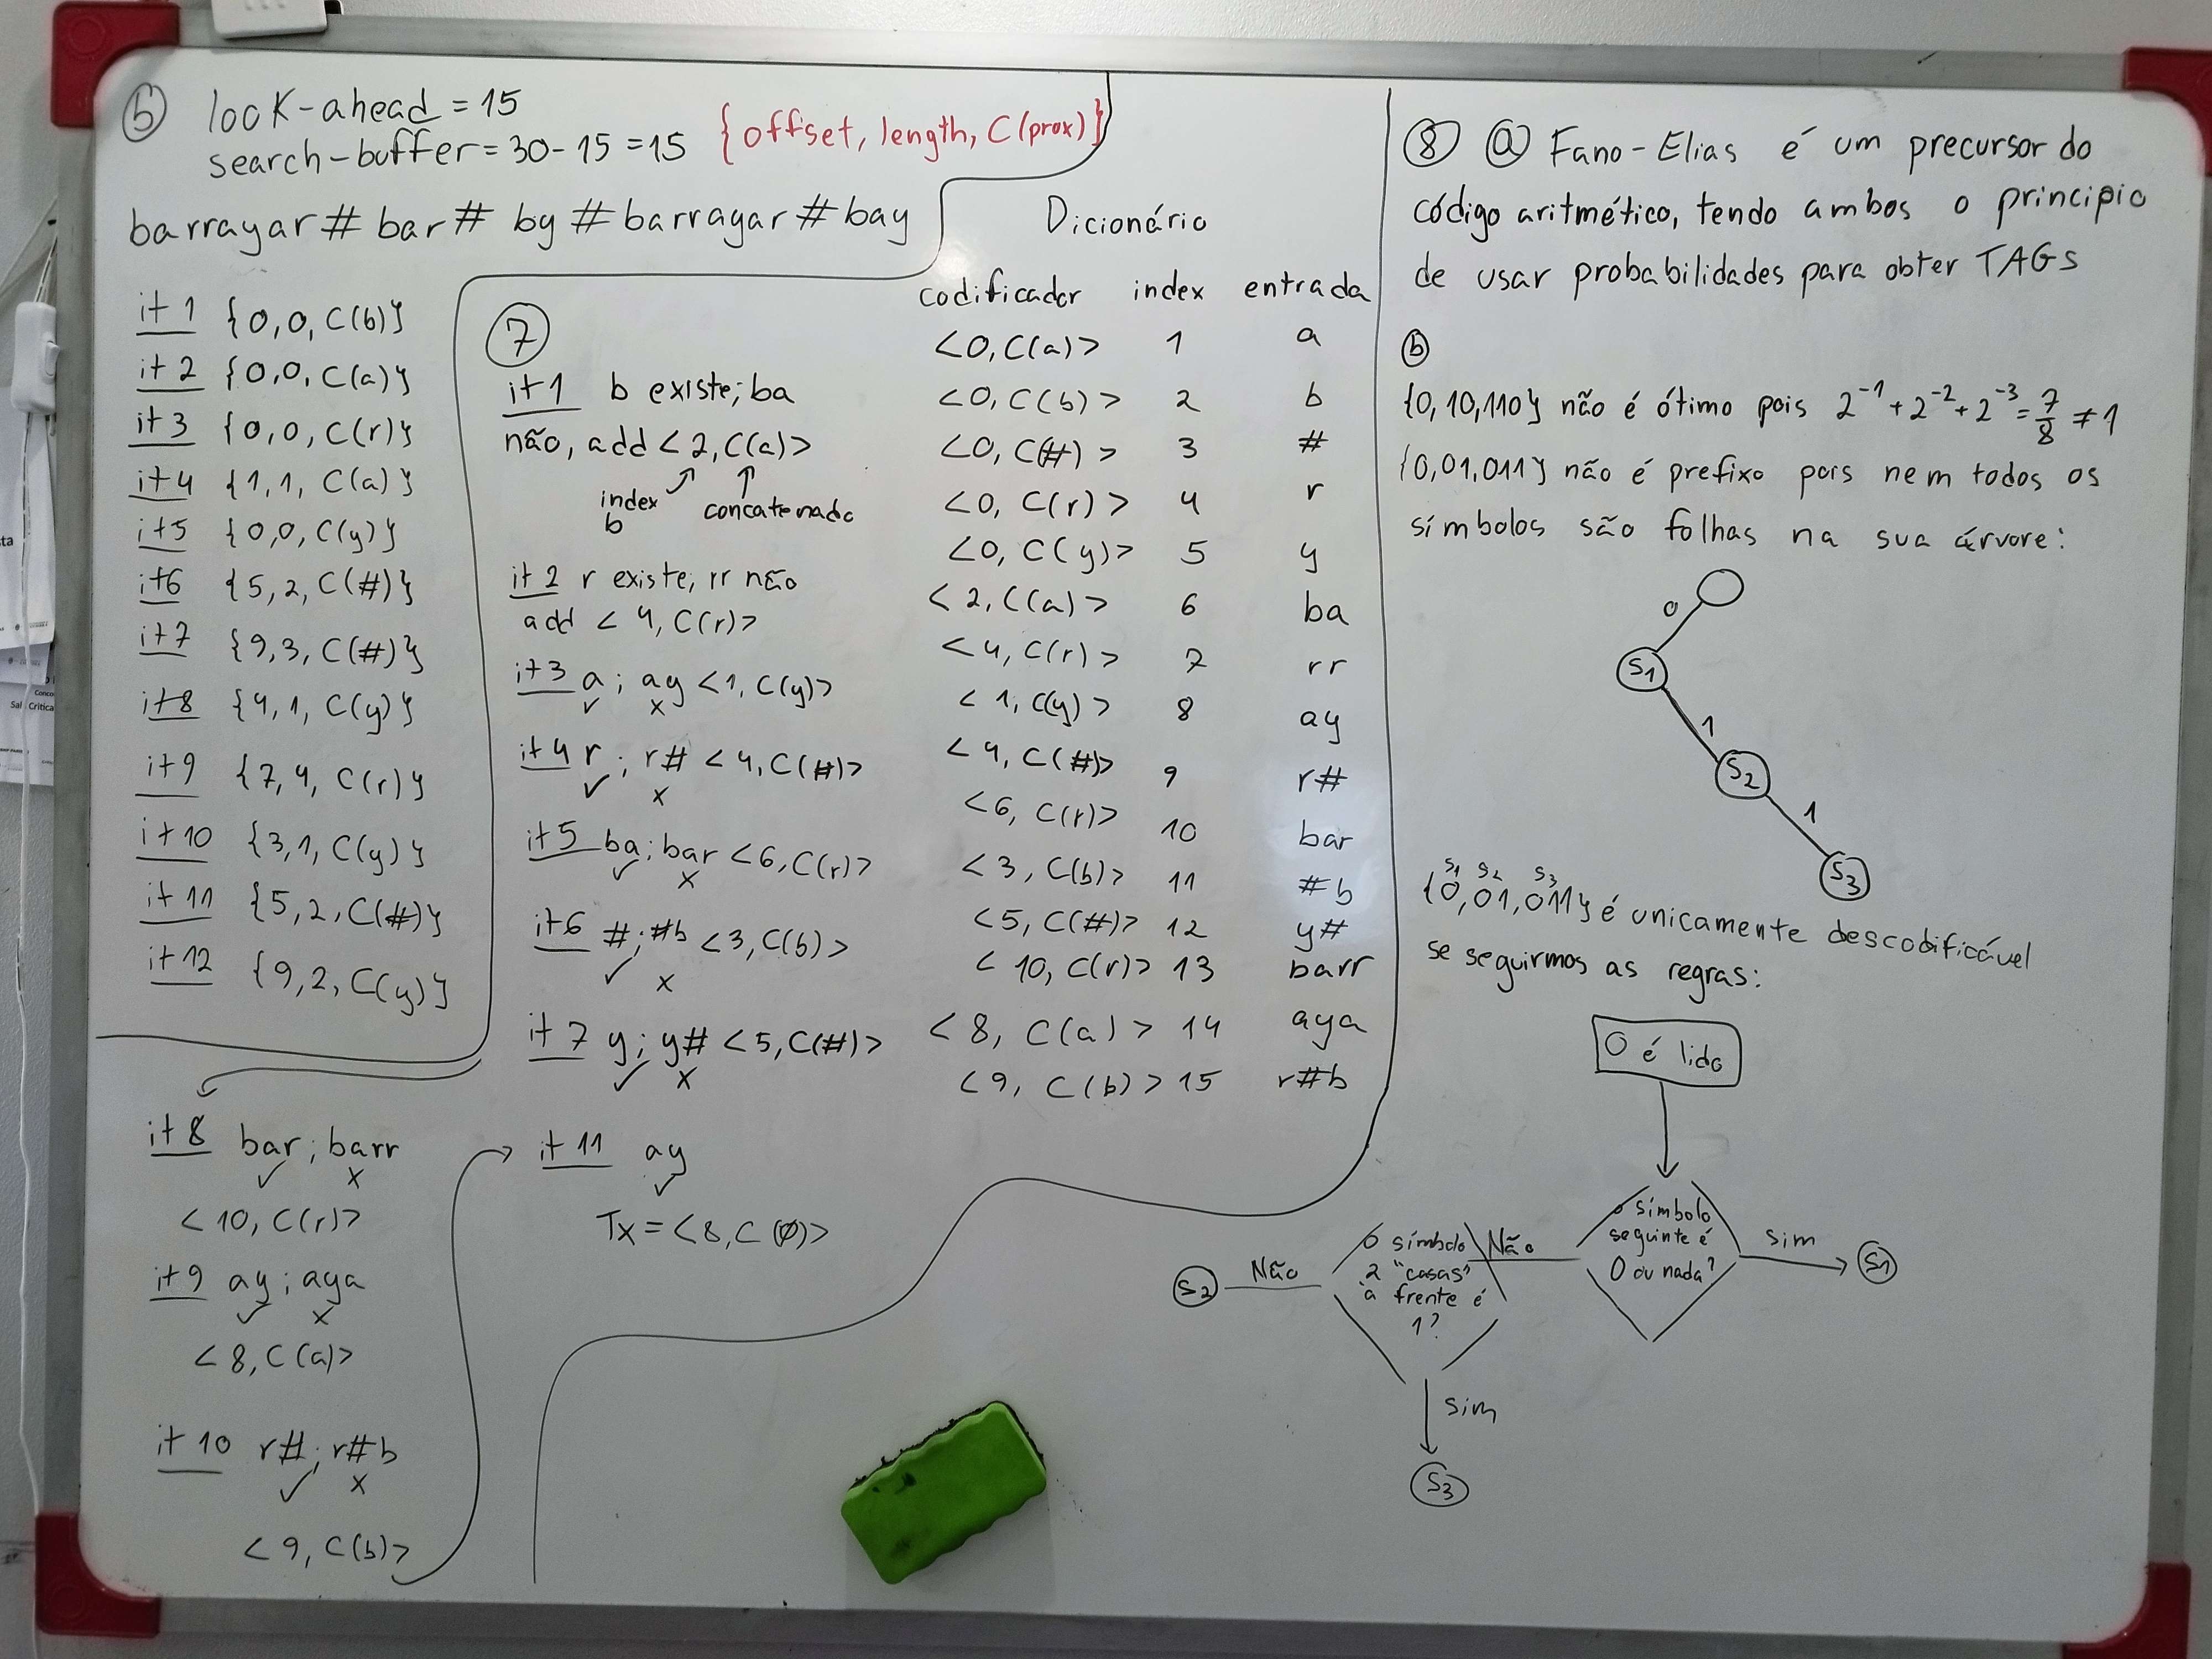 6 look-ahead = 15
search-buffer = 30-15 = 15 {offset, length, C(prox)}
barrayar# bar# by# barrayar# bay
it 1 {0,0, C(b)}
it 2 {0,0, C(a)}
it 3 {0,0, C(r)}
it 4 {1,1, C(a)}
it 5 {0,0, C(y)}
it 6 {5,2, C(#)}
it 7 {9,3, C(#)}
it 8 {4,1, C(y)}
it 9 {7,4, C(r)}
it 10 {3,1, C(y)}
it 11 {5,2, C(#)}
it 12 {9,2, C(y)}
7
it 1 b existe; ba
não, add <2, C(a)>
index concatenado
b
it 2 r existe; rr não
add <4, C(r)>
it 3 a; ay <1, C(y)>
✓ x
it 4 r; r# <4, C(#)>
✓ x
it 5 ba; bar <6, C(r)>
✓ x
it 6 #; #b <3, C(b)>
✓ x
it 7 y; y# <5, C(#)>
✓ x
it 8 bar; barr
✓ x
<10, C(r)>
it 9 ay; aya
✓ x
<8, C(a)>
it 10 r#; r#b
✓ x
<9, C(b)>
it 11 ay
✓
Tx = <8, C(∅)>
Dicionário
codificador index entrada
<0, C(a)> 1 a
<0, C(b)> 2 b
<0, C(#)> 3 #
<0, C(r)> 4 r
<0, C(y)> 5 y
<2, C(a)> 6 ba
<4, C(r)> 7 rr
<1, C(y)> 8 ay
<4, C(#)> 9 r#
<6, C(r)> 10 bar
<3, C(b)> 11 #b
<5, C(#)> 12 y#
<10, C(r)> 13 barr
<8, C(a)> 14 aya
<9, C(b)> 15 r#b
8 a Fano-Elias é um precursor do
código aritmético, tendo ambos o principio
de usar probabilidades para obter TAGs
b
{0,10,110} não é ótimo pois 2⁻¹+2⁻²+2⁻³=7/8≠1
{0,01,011} não é prefixo pois nem todos os
símbolos são folhas na sua árvore:
0
S1
1
S2
1
S3
S1 S2 S3
{0,01,011} é unicamente descodificável
se seguirmos as regras:
0 é lido
o símbolo
seguinte é
0 ou nada?
Sim
S1
Não
o símbolo
2 "casas"
à frente é
1?
Não
S2
Sim
S3
ta
Sal
Critica